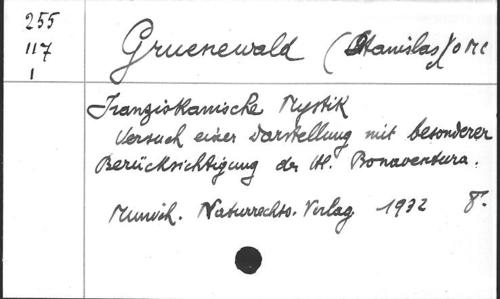 255
117
1
Gruenewald (Stanislas) O M C
Franziskanische Mystik
Versuch einer Darstellung mit besonderer
Berücksichtigung des hl. Bonaventura.
Munich. Naturrechts-Verlag 1932 8°.